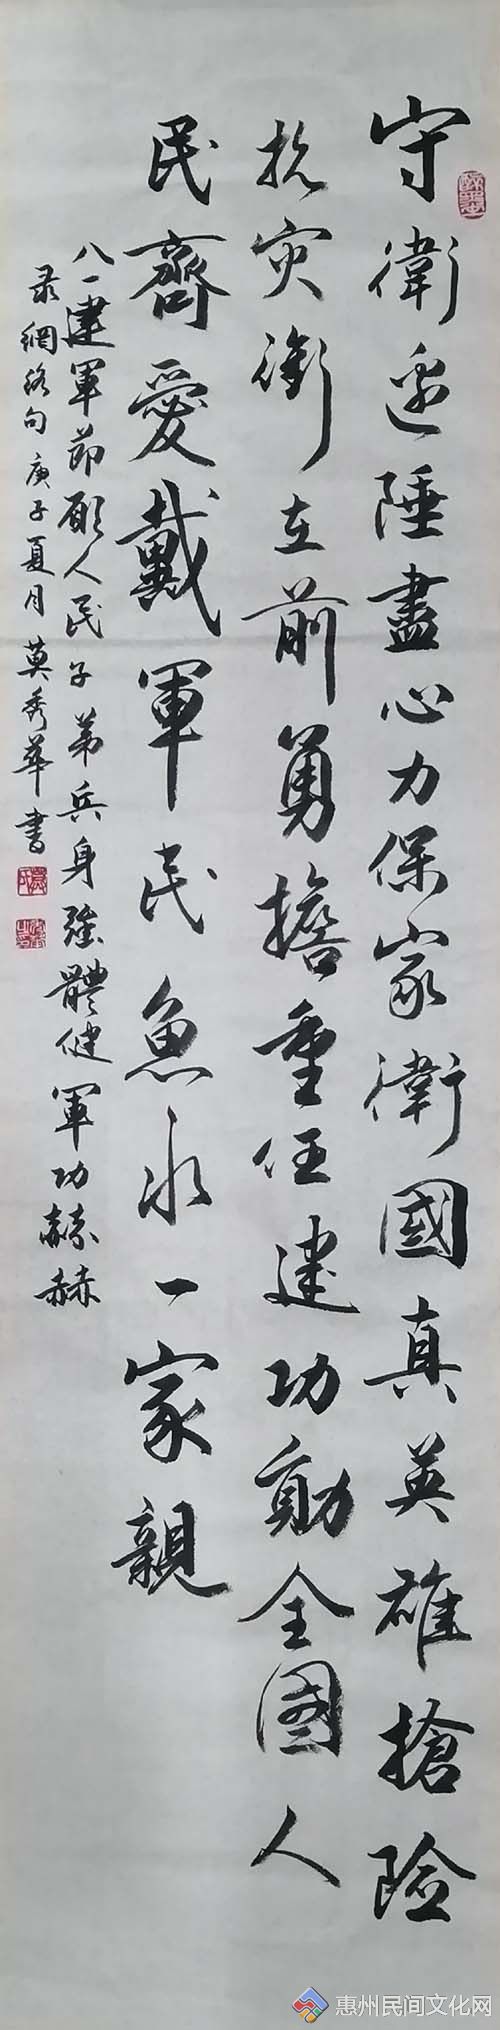 守衛边陲盡心力保家衛國真英雄搶險
抗灾衝在前勇擔重任建功勛全國人
民齊愛戴軍民魚水一家親
八一建軍節願人民子弟兵身強體健軍功赫赫
录網络句庚子夏月莫秀華書
惠州民间文化网